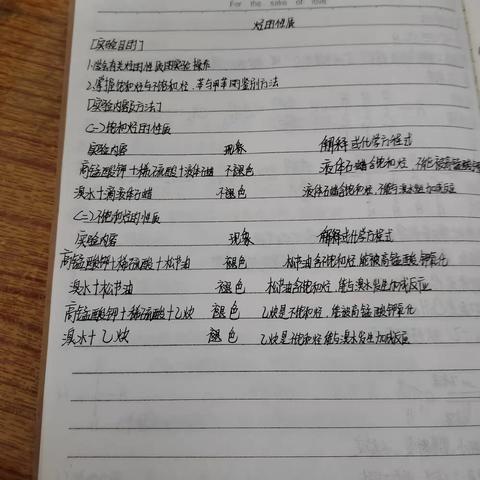 For the sake of love
烃的性质
[实验目的]
1.学会有关烃的性质的实验操作
2.掌握饱和烃与不饱和烃、苯与甲苯的鉴别方法
[实验内容及方法]
(一)饱和烃的性质
实验内容 现象 解释或化学方程式
高锰酸钾+稀硫酸+液体石蜡 不褪色 液体石蜡含饱和烃,不能被高锰酸钾
溴水+滴液体石蜡 不褪色 液体石蜡含饱和烃,不能与溴水起加成反应
(二)不饱和烃的性质
实验内容 现象 解释或化学方程式
高锰酸钾+稀硫酸+松节油 褪色 松节油含饱和烃,能被高锰酸钾氧化
溴水+松节油 褪色 松节油含饱和烃,能与溴水发生加成反应
高锰酸钾+稀硫酸+乙炔 褪色 乙炔是不饱和烃,能被高锰酸钾氧化
溴水+乙炔 褪色 乙炔是饱和烃,能与溴水发生加成反应